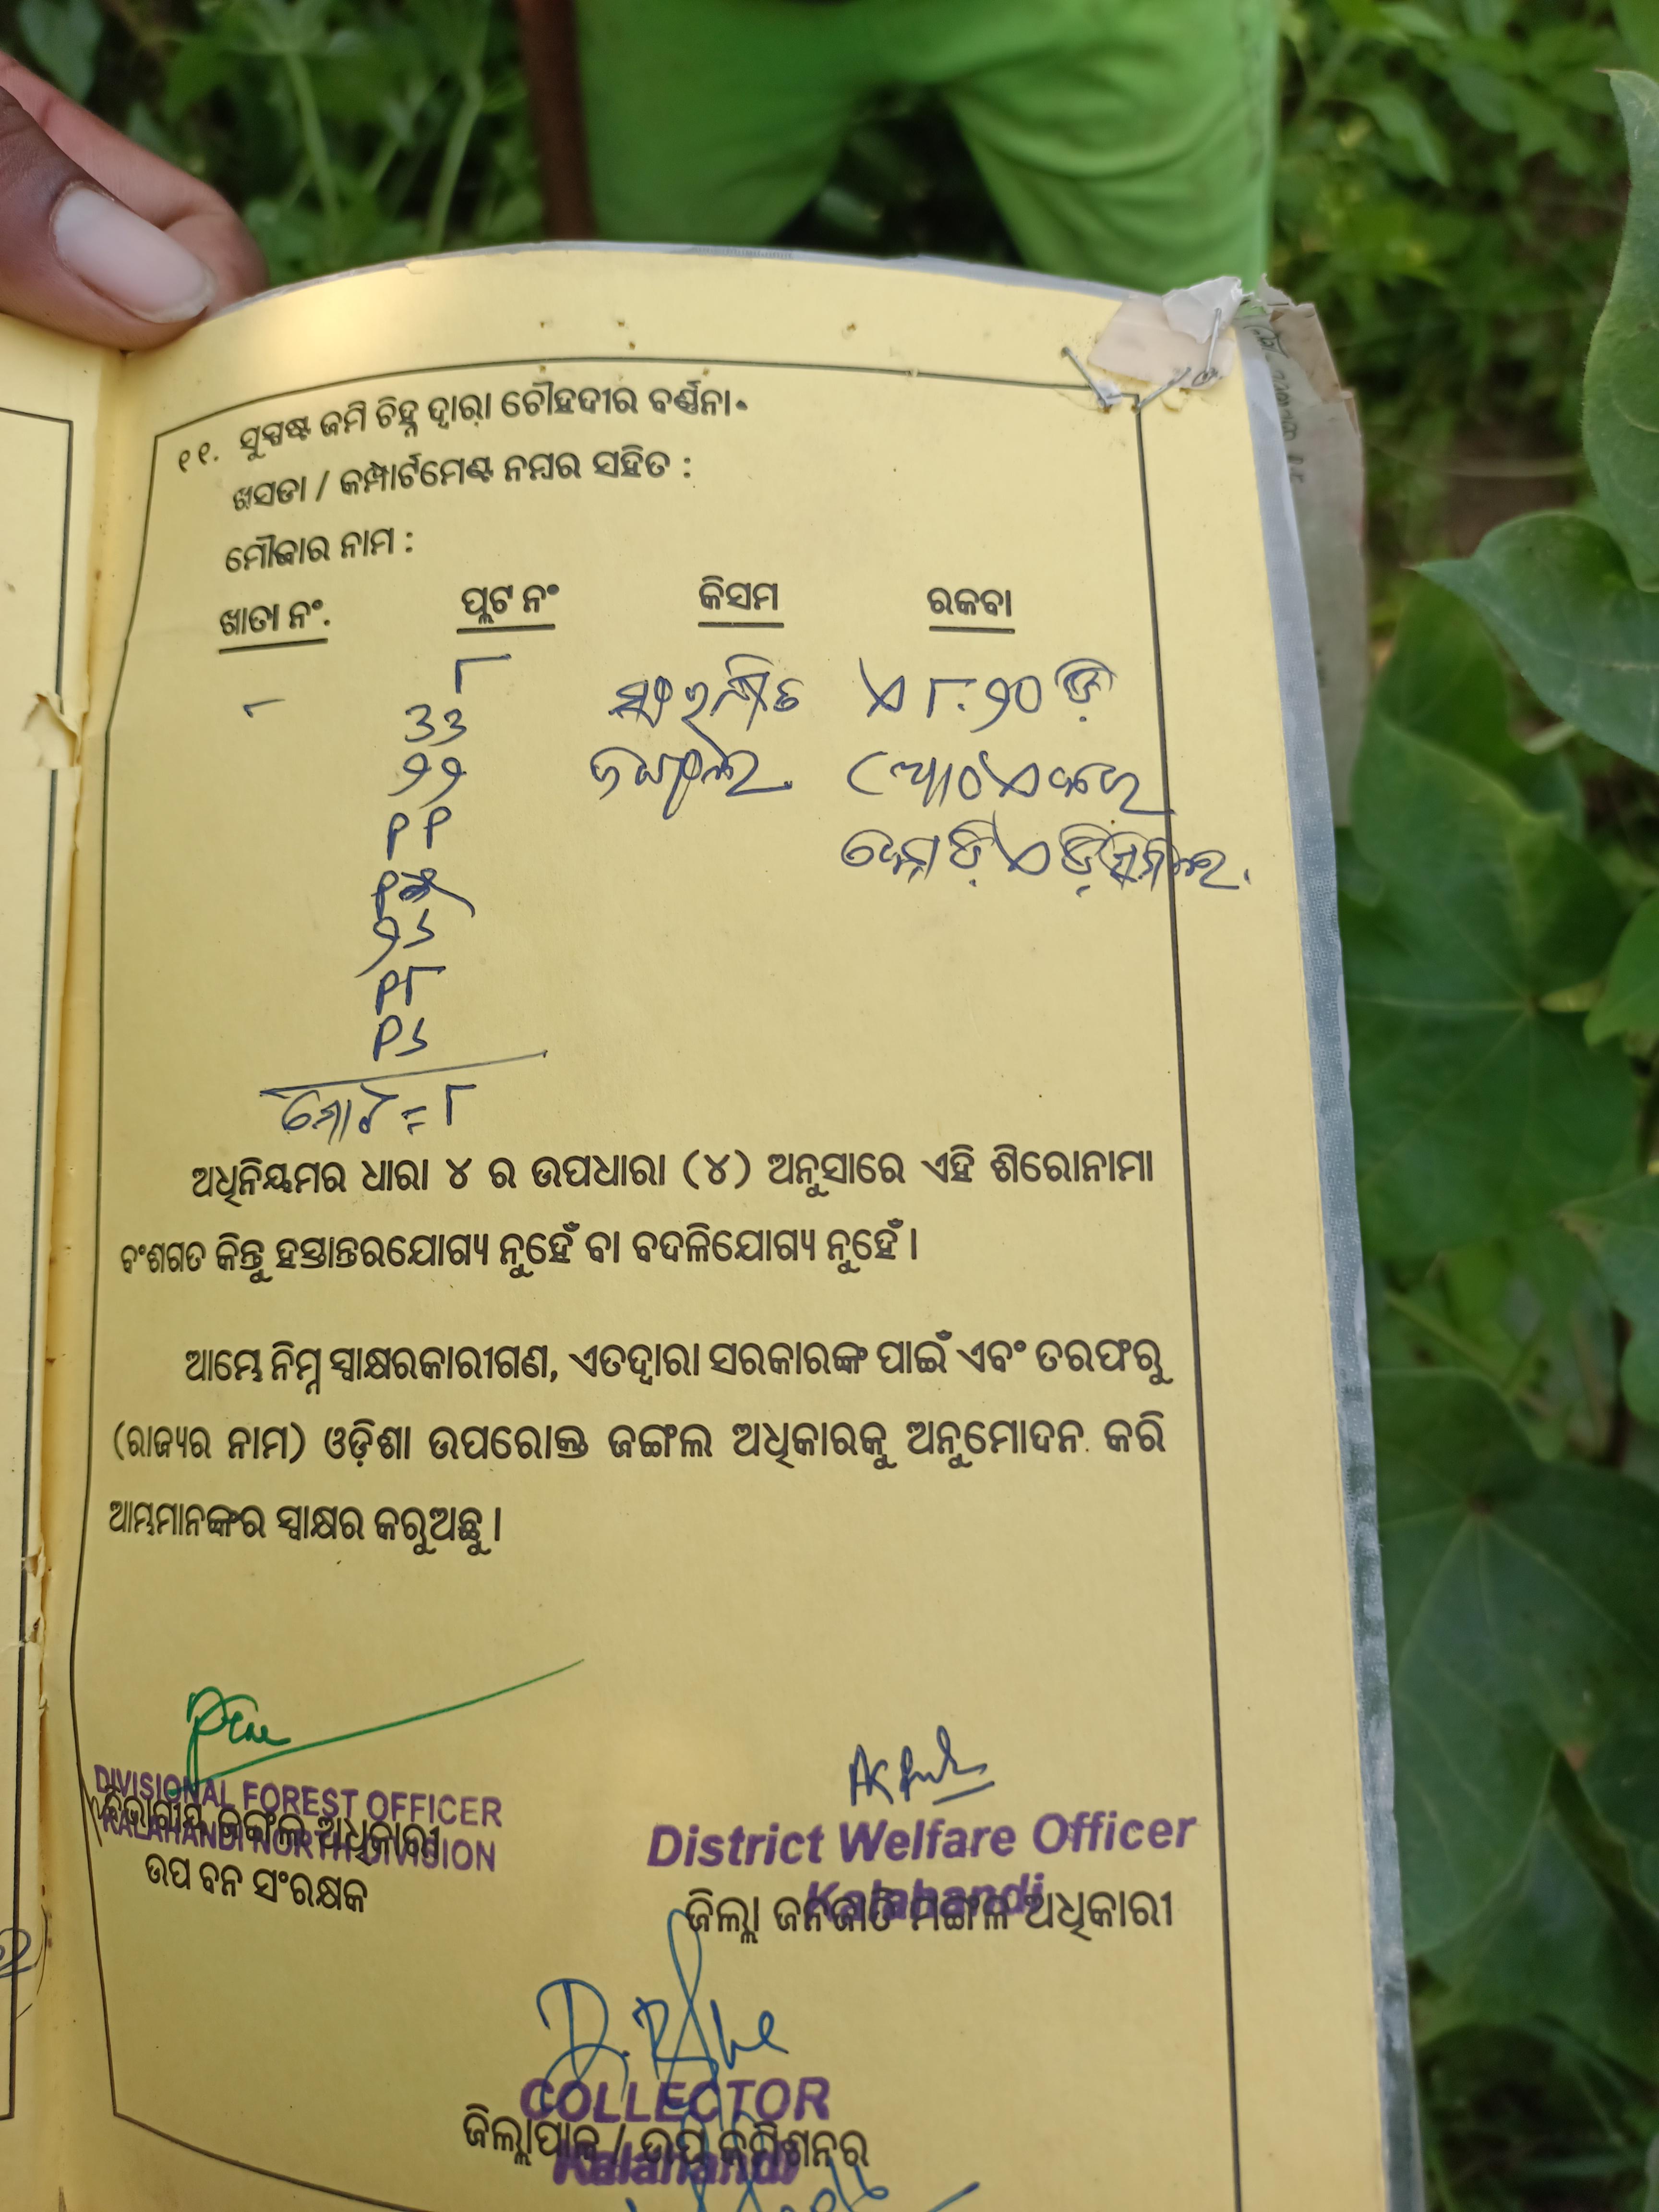 ୧୧. ସୁସ୍ପଷ୍ଟ ଜମି ଚିହ୍ନ ଦ୍ୱାରା ଚୌହଦୀର ବର୍ଣ୍ଣନା
ଖସଡା / କମ୍ପାର୍ଟମେଣ୍ଟ ନମ୍ବର ସହିତ :
ମୌଜାର ନାମ :
ଖାତା ନଂ. ପ୍ଲଟ ନଂ କିସମ ରକବା
୮
୩୩ ସଂରକ୍ଷିତ ଏ ୮.୨୦ ଡି
୨୨ ଜଙ୍ଗଲ (ଆଠ ଏକର
୨୪
୮
ମୋଟ = ୮
ଅଧିନିୟମର ଧାରା ୪ ର ଉପଧାରା (୪) ଅନୁସାରେ ଏହି ଶିରୋନାମା
ବଂଶଗତ କିନ୍ତୁ ହସ୍ତାନ୍ତରଯୋଗ୍ୟ ନୁହେଁ ବା ବଦଳିଯୋଗ୍ୟ ନୁହେଁ ।
ଆମ୍ଭେ ନିମ୍ନ ସ୍ୱାକ୍ଷରକାରୀଗଣ, ଏତଦ୍ୱାରା ସରକାରଙ୍କ ପାଇଁ ଏବଂ ତରଫରୁ
(ରାଜ୍ୟର ନାମ) ଓଡ଼ିଶା ଉପରୋକ୍ତ ଜଙ୍ଗଲ ଅଧିକାରକୁ ଅନୁମୋଦନ କରି
ଆମ୍ଭମାନଙ୍କର ସ୍ୱାକ୍ଷର କରୁଅଛୁ ।
DIVISIONAL FOREST OFFICER
ବିଭାଗୀୟ ଜଙ୍ଗଲ ଅଧିକାରୀ
KALAHANDI NORTH DIVISION
ଉପ ବନ ସଂରକ୍ଷକ
District Welfare Officer
Kalahandi
ଜିଲ୍ଲା ଜନଜାତି ମଙ୍ଗଳ ଅଧିକାରୀ
COLLECTOR
ଜିଲ୍ଲାପାଳ / ଉପ କମିଶନର
Kalahandi